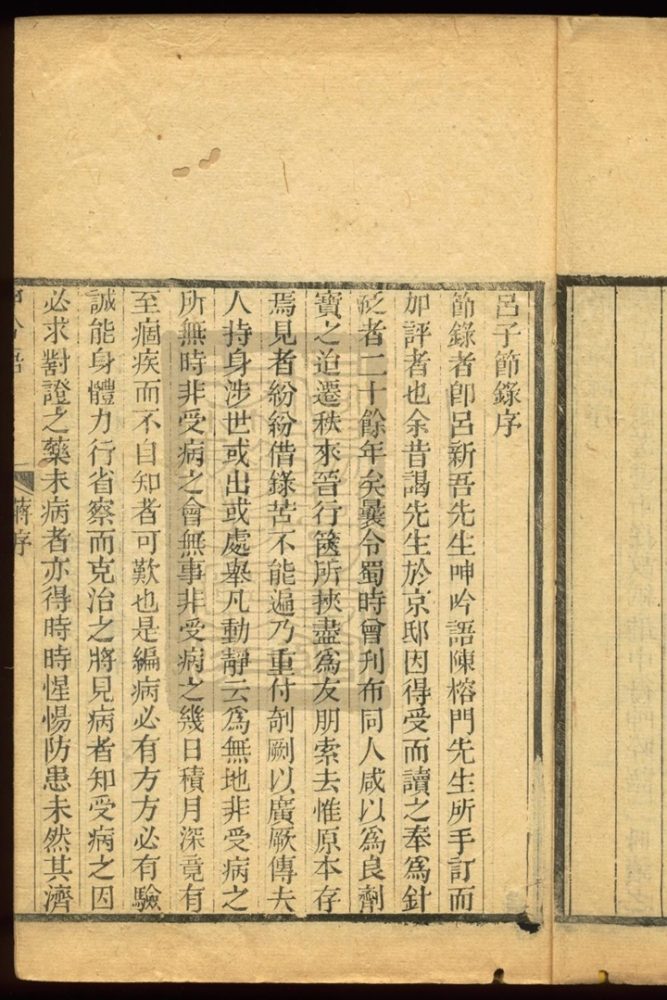 呂子節錄序
節錄者卽呂新吾先生呻吟語陳榕門先生所手訂而
加評者也余昔謁先生於京邸因得受而讀之奉爲針
砭者二十餘年矣曩令蜀時曾刋布同人咸以爲良劑
寶之迨遷秩來晉行篋所挾盡爲友朋索去惟原本存
焉見者紛紛借錄苦不能遍乃重付剞劂以廣厥傳夫
人持身涉世或出或處舉凡動靜云爲無地非受病之
所無時非受病之會無事非受病之幾日積月深竟有
至痼疾而不自知者可歎也是編病必有方方必有驗
誠能身體力行省察而克治之將見病者知受病之因
必求對證之藥未病者亦得時時惺惕防患未然其濟
蔣序